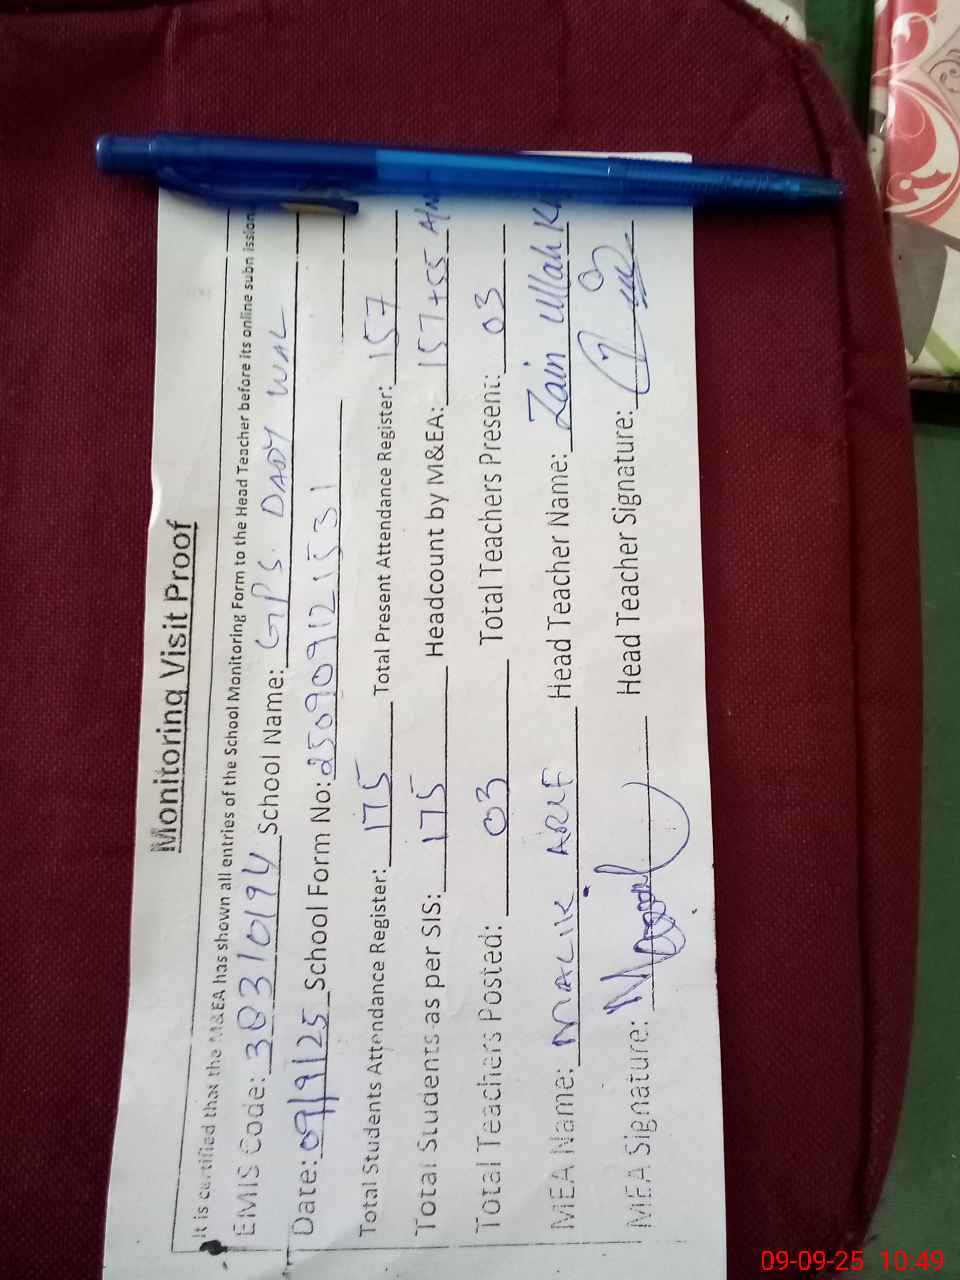 Monitoring Visit Proof
It is certified that the M&EA has shown all entries of the School Monitoring Form to the Head Teacher before its online submission
EMIS Code: 38310194 School Name: GPS. DADY WAL
Date: 09/9/25 School Form No: 250909121531
Total Students Attendance Register: 175 Total Present Attendance Register: 157
Total Students as per SIS: 175 Headcount by M&EA: 157+55
Total Teachers Posted: 03 Total Teachers Present: 03
MEA Name: MALIK ARIF Head Teacher Name: Zain Ullah
MEA Signature: Head Teacher Signature:
09-09-25 10:49